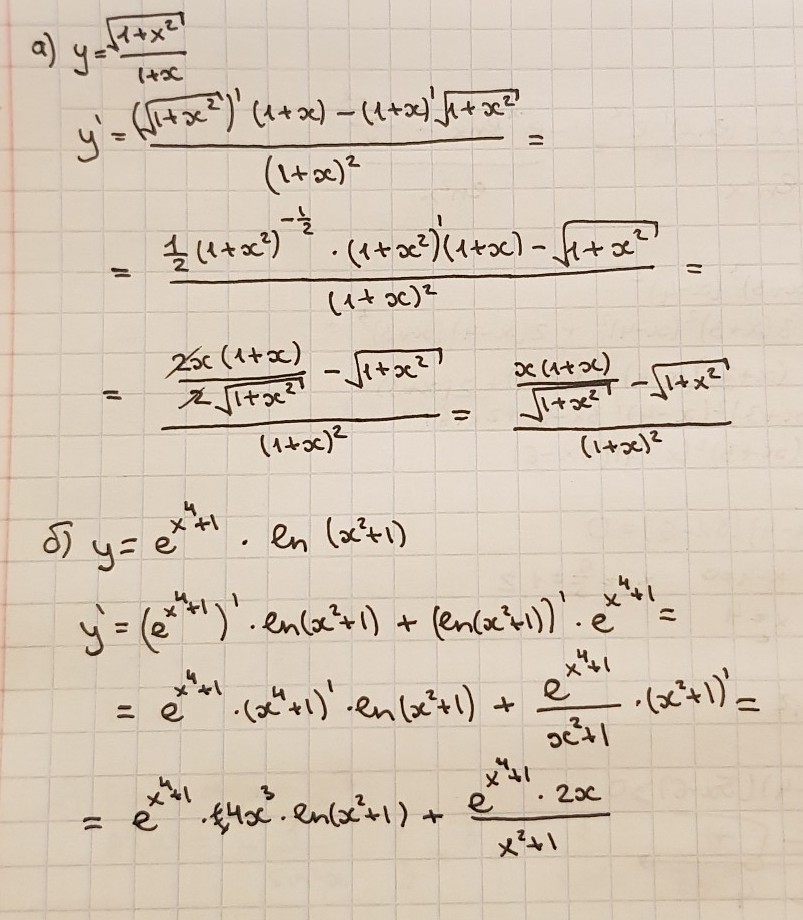 а) y = √(1+x²) / (1+x)
y' = ((√(1+x²))' (1+x) − (1+x)' √(1+x²)) / (1+x)² =
= (1/2 (1+x²)^(−1/2) · (1+x²)' (1+x) − √(1+x²)) / (1+x)² =
= (2x(1+x) / (2√(1+x²)) − √(1+x²)) / (1+x)² = (x(1+x) / √(1+x²) − √(1+x²)) / (1+x)²
б) y = e^(x⁴+1) · ln (x²+1)
y' = (e^(x⁴+1))' · ln(x²+1) + (ln(x²+1))' · e^(x⁴+1) =
= e^(x⁴+1) · (x⁴+1)' · ln(x²+1) + e^(x⁴+1) / (x²+1) · (x²+1)' =
= e^(x⁴+1) · 4x³ · ln(x²+1) + (e^(x⁴+1) · 2x) / (x²+1)